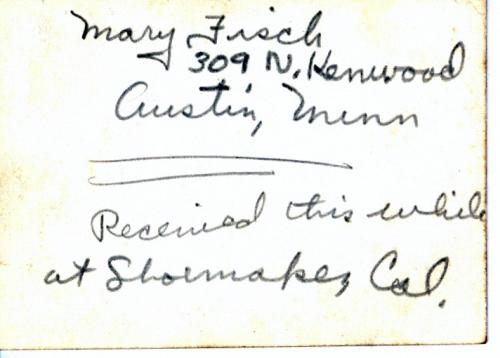 Mary Fisch
309 N. Kenwood
Austin, Minn
Received this while
at Shoemaker, Cal.